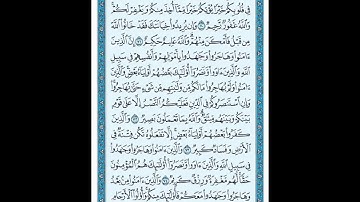 فِي قُلُوبِكُمْ خَيْرًا يُؤْتِكُمْ خَيْرًا مِّمَّآ أُخِذَ مِنكُمْ وَيَغْفِرْ لَكُمْ
وَٱللَّهُ غَفُورٌ رَّحِيمٌ ٧٠ وَإِن يُرِيدُوا۟ خِيَانَتَكَ فَقَدْ خَانُوا۟ ٱللَّهَ
مِن قَبْلُ فَأَمْكَنَ مِنْهُمْ وَٱللَّهُ عَلِيمٌ حَكِيمٌ ٧١ إِنَّ ٱلَّذِينَ
ءَامَنُوا۟ وَهَاجَرُوا۟ وَجَٰهَدُوا۟ بِأَمْوَٰلِهِمْ وَأَنفُسِهِمْ فِي سَبِيلِ
ٱللَّهِ وَٱلَّذِينَ ءَاوَوا۟ وَّنَصَرُوٓا۟ أُو۟لَٰٓئِكَ بَعْضُهُمْ أَوْلِيَآءُ بَعْضٍ وَٱلَّذِينَ
ءَامَنُوا۟ وَلَمْ يُهَاجِرُوا۟ مَا لَكُم مِّن وَلَٰيَتِهِم مِّن شَىْءٍ حَتَّىٰ يُهَاجِرُوا۟
وَإِنِ ٱسْتَنصَرُوكُمْ فِي ٱلدِّينِ فَعَلَيْكُمُ ٱلنَّصْرُ إِلَّا عَلَىٰ قَوْمٍ
بَيْنَكُمْ وَبَيْنَهُم مِّيثَٰقٌ وَٱللَّهُ بِمَا تَعْمَلُونَ بَصِيرٌ ٧٢ وَٱلَّذِينَ
كَفَرُوا۟ بَعْضُهُمْ أَوْلِيَآءُ بَعْضٍ إِلَّا تَفْعَلُوهُ تَكُن فِتْنَةٌ فِي
ٱلْأَرْضِ وَفَسَادٌ كَبِيرٌ ٧٣ وَٱلَّذِينَ ءَامَنُوا۟ وَهَاجَرُوا۟ وَجَٰهَدُوا۟
فِي سَبِيلِ ٱللَّهِ وَٱلَّذِينَ ءَاوَوا۟ وَّنَصَرُوٓا۟ أُو۟لَٰٓئِكَ هُمُ ٱلْمُؤْمِنُونَ
حَقًّا لَّهُم مَّغْفِرَةٌ وَرِزْقٌ كَرِيمٌ ٧٤ وَٱلَّذِينَ ءَامَنُوا۟ مِنۢ بَعْدُ
وَهَاجَرُوا۟ وَجَٰهَدُوا۟ مَعَكُمْ فَأُو۟لَٰٓئِكَ مِنكُمْ وَأُو۟لُوا۟ ٱلْأَرْحَامِ